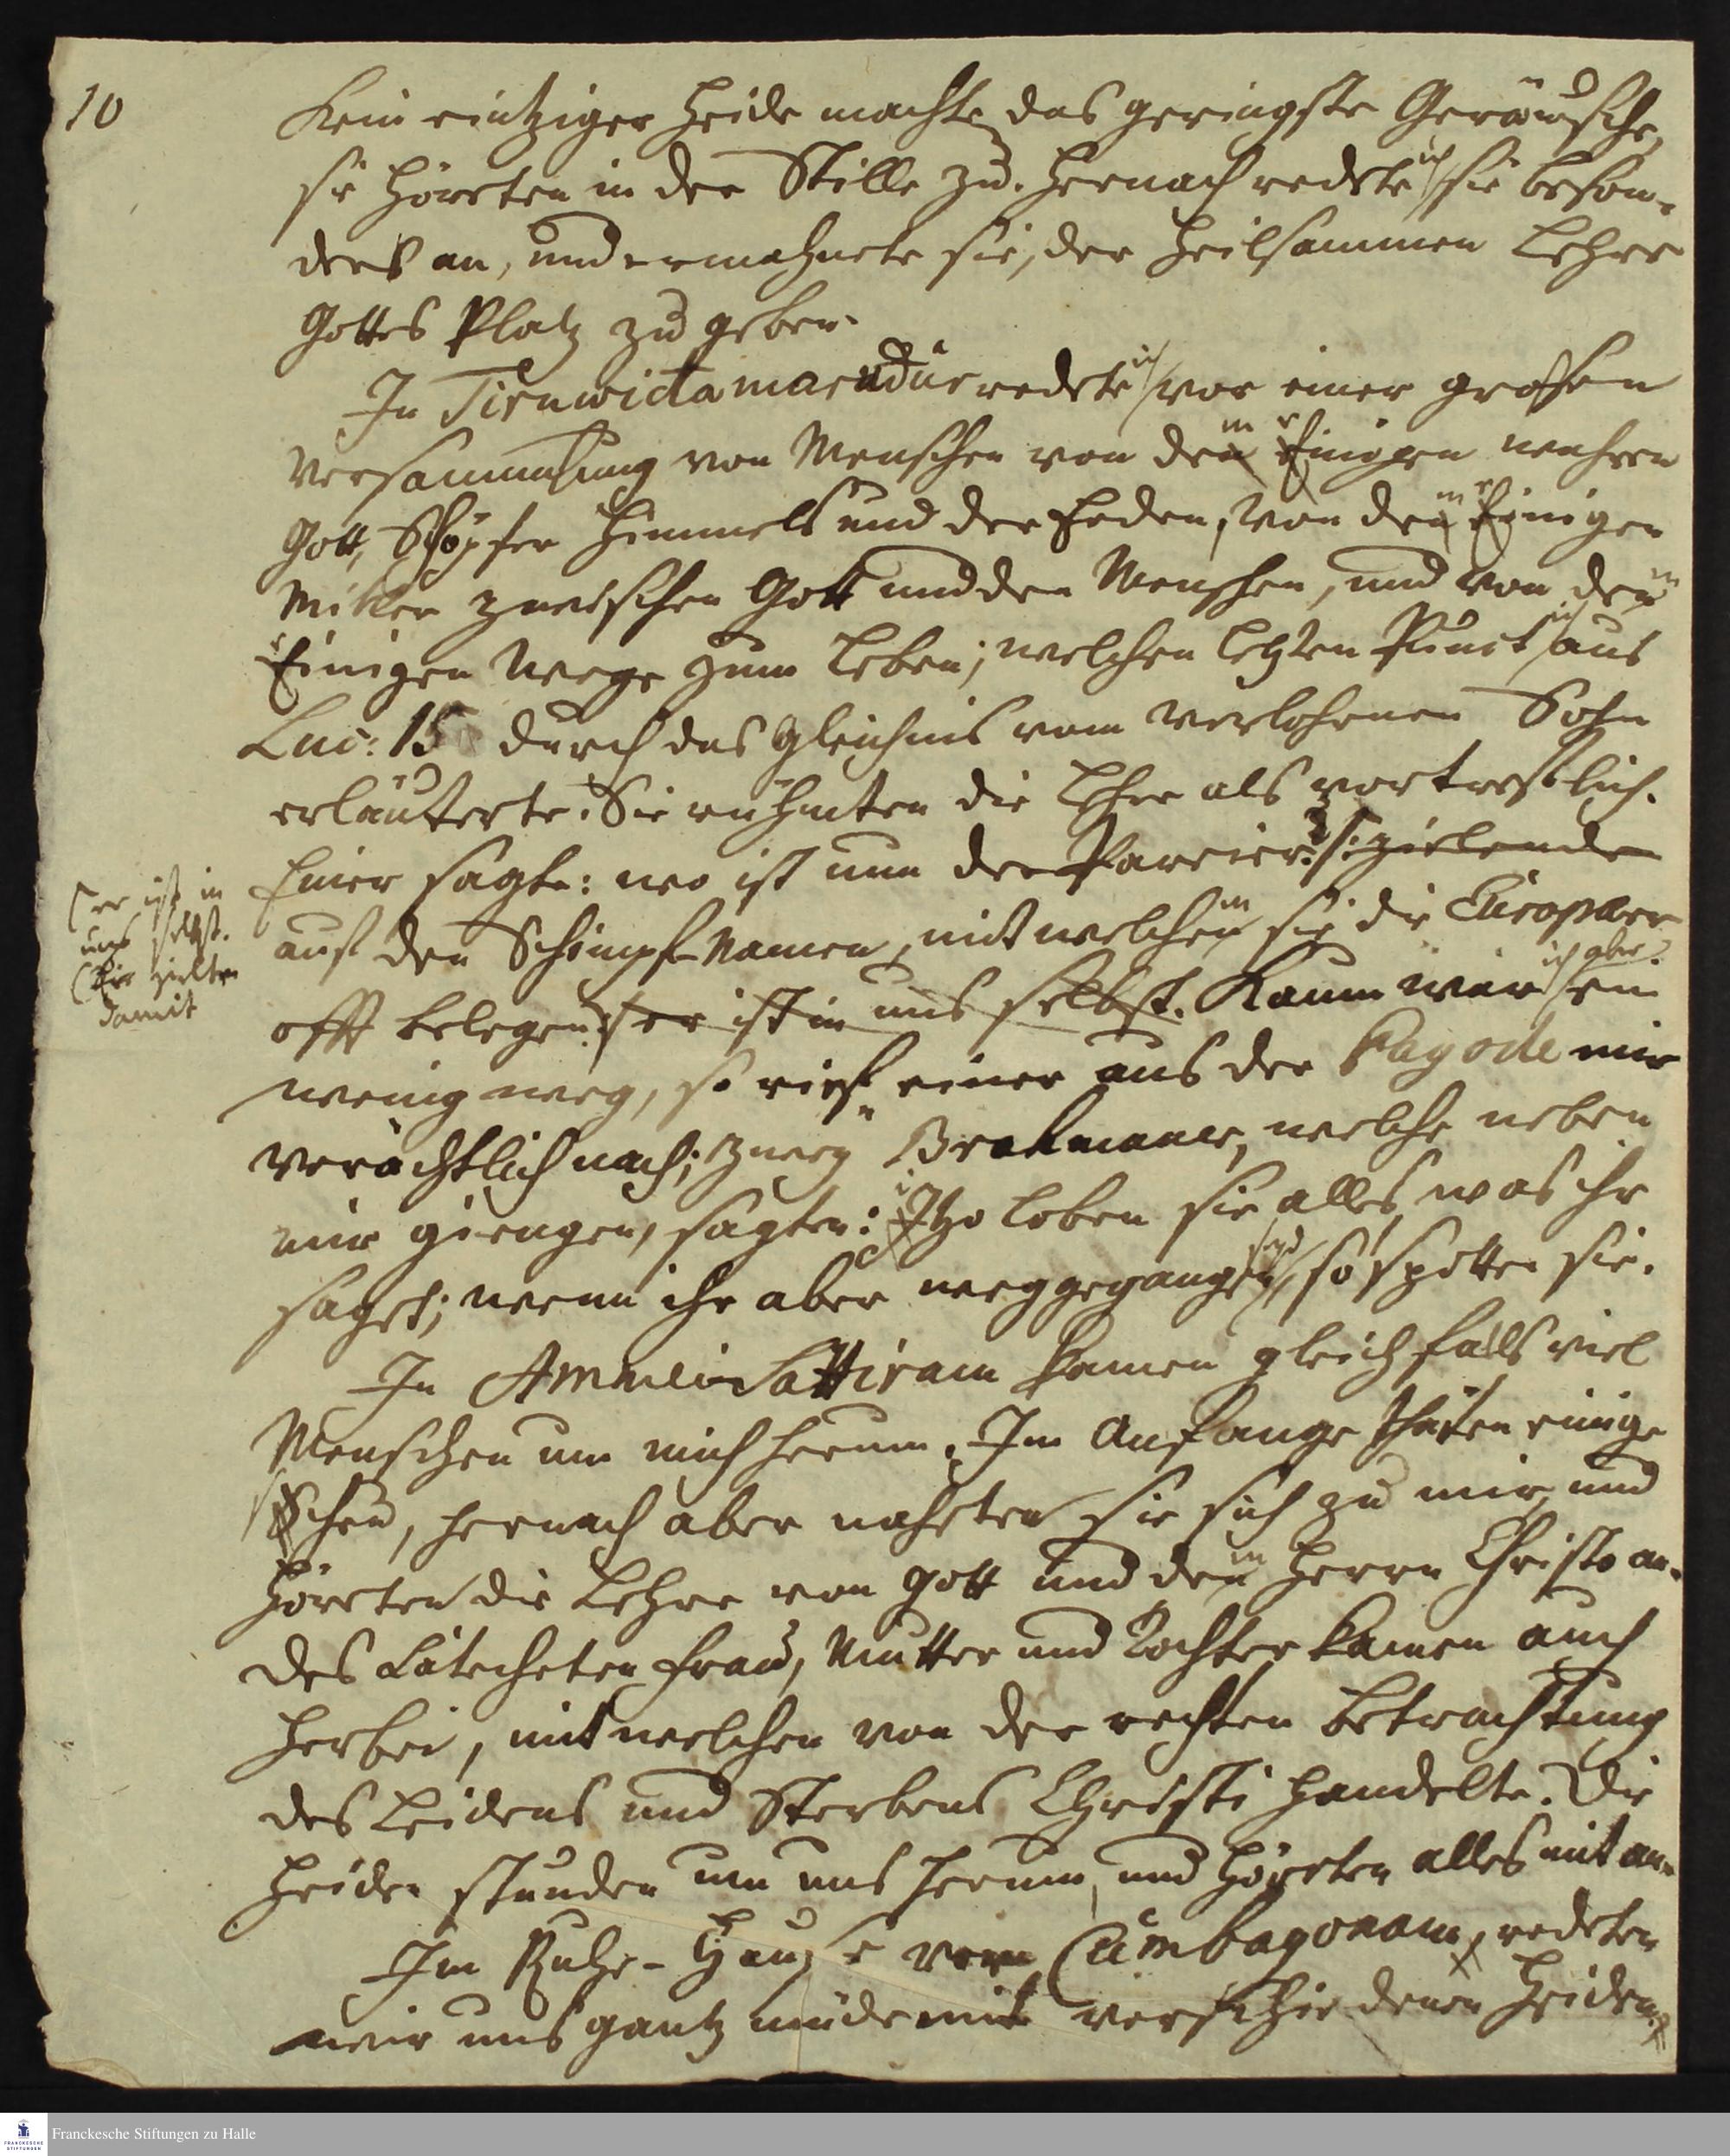 10
Kein eintziger Heide machte das geringste Geräusche,
sie höreten in der Stille zu. Hernach redete ich sie beson-
ders an, und ermahnete sie, der heilsammen Lehre
Gottes Platz zu geben.
In Tiruwidamarudúr redete ich vor einer grosen
Versammlung von Menschen von dem Einigen wahren
Gott, Schöpfer Himmels und der Erden, von dem Einigen
Mitler zwischen Gott und den Menschen, und von dem
Einigen Wege zum Leben; welchen letzten Punct ich aus
Luc: 15 durch das Gleichnis vom verlohrnen Sohn
erläuterte. Sie rühmten die Lehre als vortreflich.
Einer sagte: wo ist nun der Pareier? /: zielende
(er ist in
uns selbst.
(Er zielte
damit
auf den Schimpf-Namen, mit welchem sie die Europäer
offt belegen :/ er ist in uns selbst. Kaum war ich aber ein
wenig weg, so rief einer aus der Pagode mir
verächtlich nach; zwey Brahmaner, welche neben
mir giengen, sagten: Itzo loben sie alles, was ihr
saget; wenn ihr aber weggegangen seyd, so spotten sie.
In Ammei Sattiram kamen gleichfals viel
Menschen um mich herum. Im Anfange thaten einige
scheu, hernach aber naheten sie sich zu mir, und
höreten die Lehre von Gott und dem Herrn Christo an.
Des Catecheten Frau, Mutter und Tochter kamen auch
herbei, mit welchen von der rechten Betrachtung
des Leidens und Sterbens Christi handelte. Die
Heiden stunden um uns herum, und höreten alles mit an.
Im Ruhe-Hause vor Cumbagonam, redeten
wir uns gantz müde mit verschiedenen Heiden,
Franckesche Stiftungen zu Halle